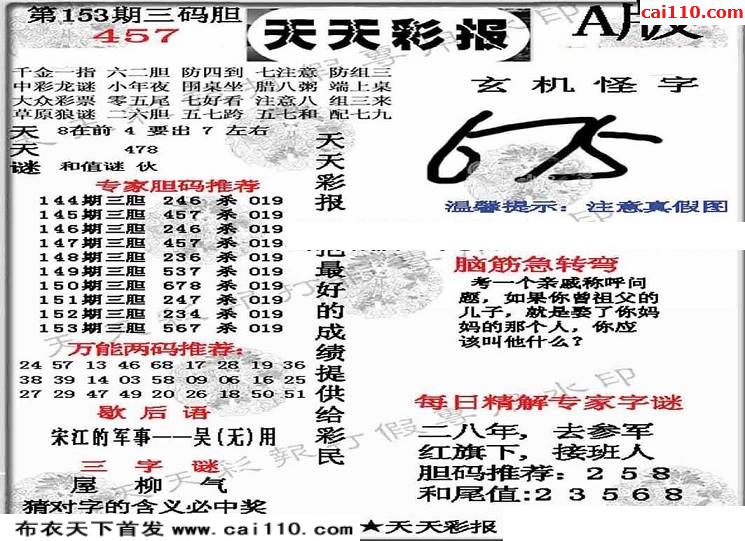 第153期三码胆
457
天天彩报
A版
cai110.com
千金一指 六二胆 防四到 七注意 防组三
中彩龙谜 小年夜 围桌坐 腊八粥 端上桌
大众彩票 零五尾 七好看 注意八 组三来
草原狼谜 二六胆 五七跨 五七和 配七九
天 8在前 4 要出 7 左右
天 478
谜 和值谜 伙
专家胆码推荐
144期三胆 246 杀 019
145期三胆 457 杀 019
146期三胆 246 杀 019
147期三胆 457 杀 019
148期三胆 236 杀 019
149期三胆 537 杀 019
150期三胆 678 杀 019
151期三胆 247 杀 019
152期三胆 234 杀 019
153期三胆 567 杀 019
万能两码推荐:
24 57 13 46 68 17 28 19 36
38 39 14 03 58 09 06 16 25
27 29 47 49 20 26 18 50 51
歇后语
宋江的军事——吴(无)用
三字谜
屋 柳 气
猜对字的含义必中奖
天天彩报
把最好的成绩提供给彩民
玄机怪字
675
温馨提示: 注意真假图
脑筋急转弯
考一个亲戚称呼问
题，如果你曾祖父的
儿子，就是娶了你妈
妈的那个人，你应
该叫他什么?
每日精解专家字谜
二八年, 去参军
红旗下, 接班人
胆码推荐: 258
和尾值:23568
布衣天下首发 www.cai110.com
★天天彩报